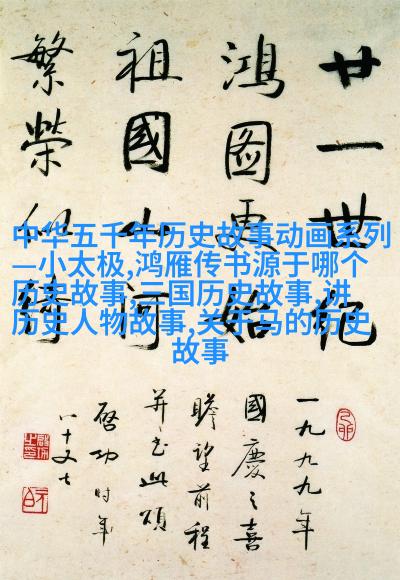 中华五千年历史故事动画系列
—小太极,鸿雁传书源于哪个
历史故事,三国历史故事,讲
历史人物故事,关于马的历史
故事
廿一世纪
鸿图更始
祖國山河
繁榮似綺
一九九九年
國慶之喜
瞻望前程
并书此頌
啓功时年
八十又七